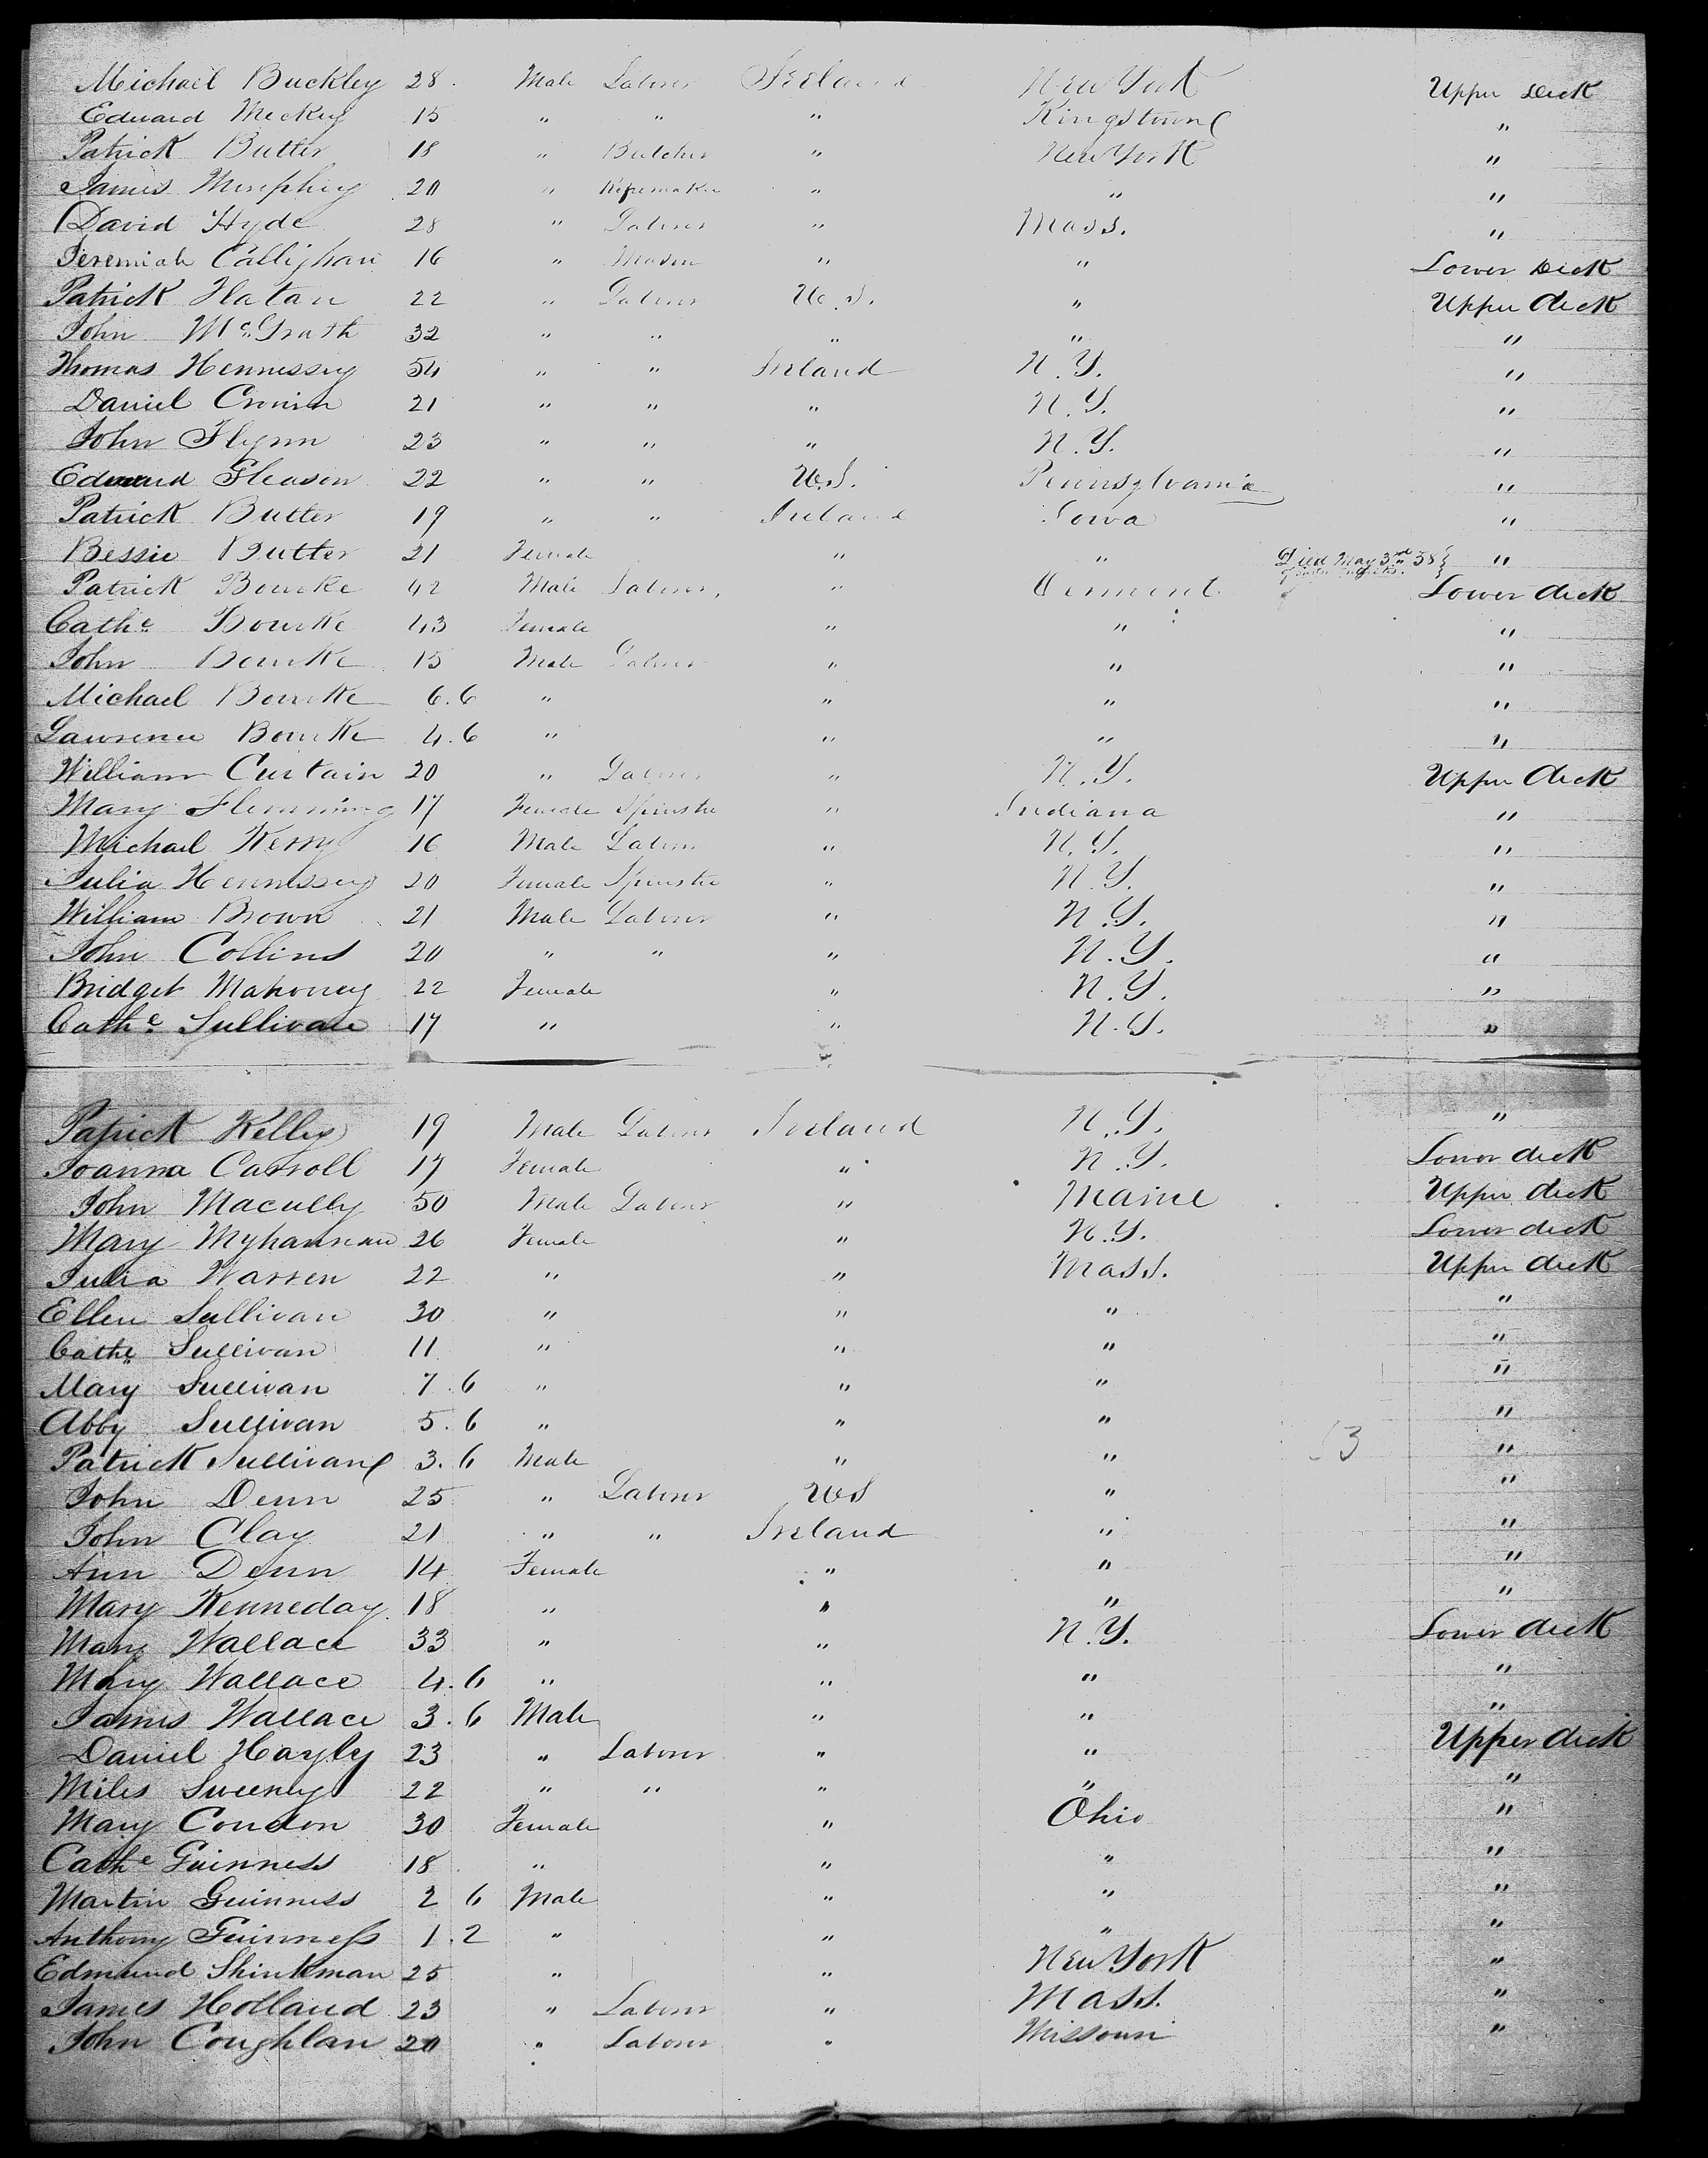 Michael Buckley 28 Male Laborer Ireland New York Upper Deck
Edward Mickey 15 " " " Kingstown "
Patrick Butler 18 " Butcher " New York "
James Murphy 20 " Ropemaker " " "
David Hyde 28 " Laborer " Mass. "
Jeremiah Callighan 16 " Mason " " Lower Deck
Patrick Hatan 22 " Laborer U.S. " Upper deck
John McGrath 32 " " " " "
Thomas Hennessey 54 " " Ireland N.Y. "
Daniel Cronin 21 " " " N.Y. "
John Flynn 23 " " " N.Y. "
Edward Gleason 22 " " U.S. Pennsylvania "
Patrick Butler 19 " " Ireland Iowa "
Bessie Butler 21 Female " " Died May 3rd 58 "
Patrick Bourke 42 Male Laborer " Vermont Lower deck
Cathe Bourke 43 Female " " "
John Bourke 15 Male Laborer " " "
Michael Bourke 6.6 " " " "
Lawrence Bourke 4.6 " " " "
William Curtain 20 " Laborer " N.Y. Upper deck
Mary Flemming 17 Female Spinster " Indiana "
Michael Kerry 16 Male Laborer " N.Y. "
Julia Hennessey 20 Female Spinster " N.Y. "
William Brown 21 Male Laborer " N.Y. "
John Collins 20 " " " N.Y. "
Bridget Mahoney 22 Female " N.Y. "
Cathe Sullivan 17 " " N.Y. "
Patrick Kelley 19 Male Laborer Ireland N.Y. "
Joanna Carroll 17 Female " N.Y. Lower deck
John Macully 50 Male Laborer " Maine Upper deck
Mary Myhannau 26 Female " N.Y. Lower deck
Julia Warren 22 " " Mass. Upper deck
Ellen Sullivan 30 " " " "
Cathe Sullivan 11 " " " "
Mary Sullivan 7.6 " " " "
Abby Sullivan 5.6 " " " "
Patrick Sullivan 3.6 Male " " "
John Denn 25 " Laborer US " "
John Clay 21 " " Ireland " "
Ann Denn 14 Female " " "
Mary Kenneday 18 " " " "
Mary Wallace 33 " " N.Y. Lower deck
Mary Wallace 4.6 " " " "
James Wallace 3.6 Male " " "
Daniel Hayly 23 " Laborer " " Upper deck
Miles Sweeney 22 " " " " "
Mary Condon 30 Female " Ohio "
Cathe Guinness 18 " " " "
Martin Guinness 2 6 Male " " "
Anthony Guinness 1.2 " " " "
Edmund Shinkman 25 " " New York "
James Holland 23 " Laborer " Mass. "
John Coughlan 20 " Laborer " Missouri "